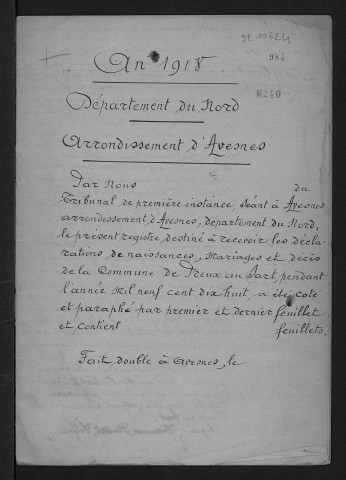 5E 10624
An 1918
984
M240
Département du Nord
Arrondissement d'Avesnes
Par Nous du
Tribunal de première instance, séant à Avesnes
arrondissement d'Avesnes, département du Nord,
le présent registre destiné à recevoir les décla
rations de naissances, Mariages et décès
de la Commune de Preux au Sart, pendant
l'année Mil neuf cent dix huit, a été coté
et paraphé par premier et dernier feuillet
et contient feuillets.
Fait double à Avesnes, le